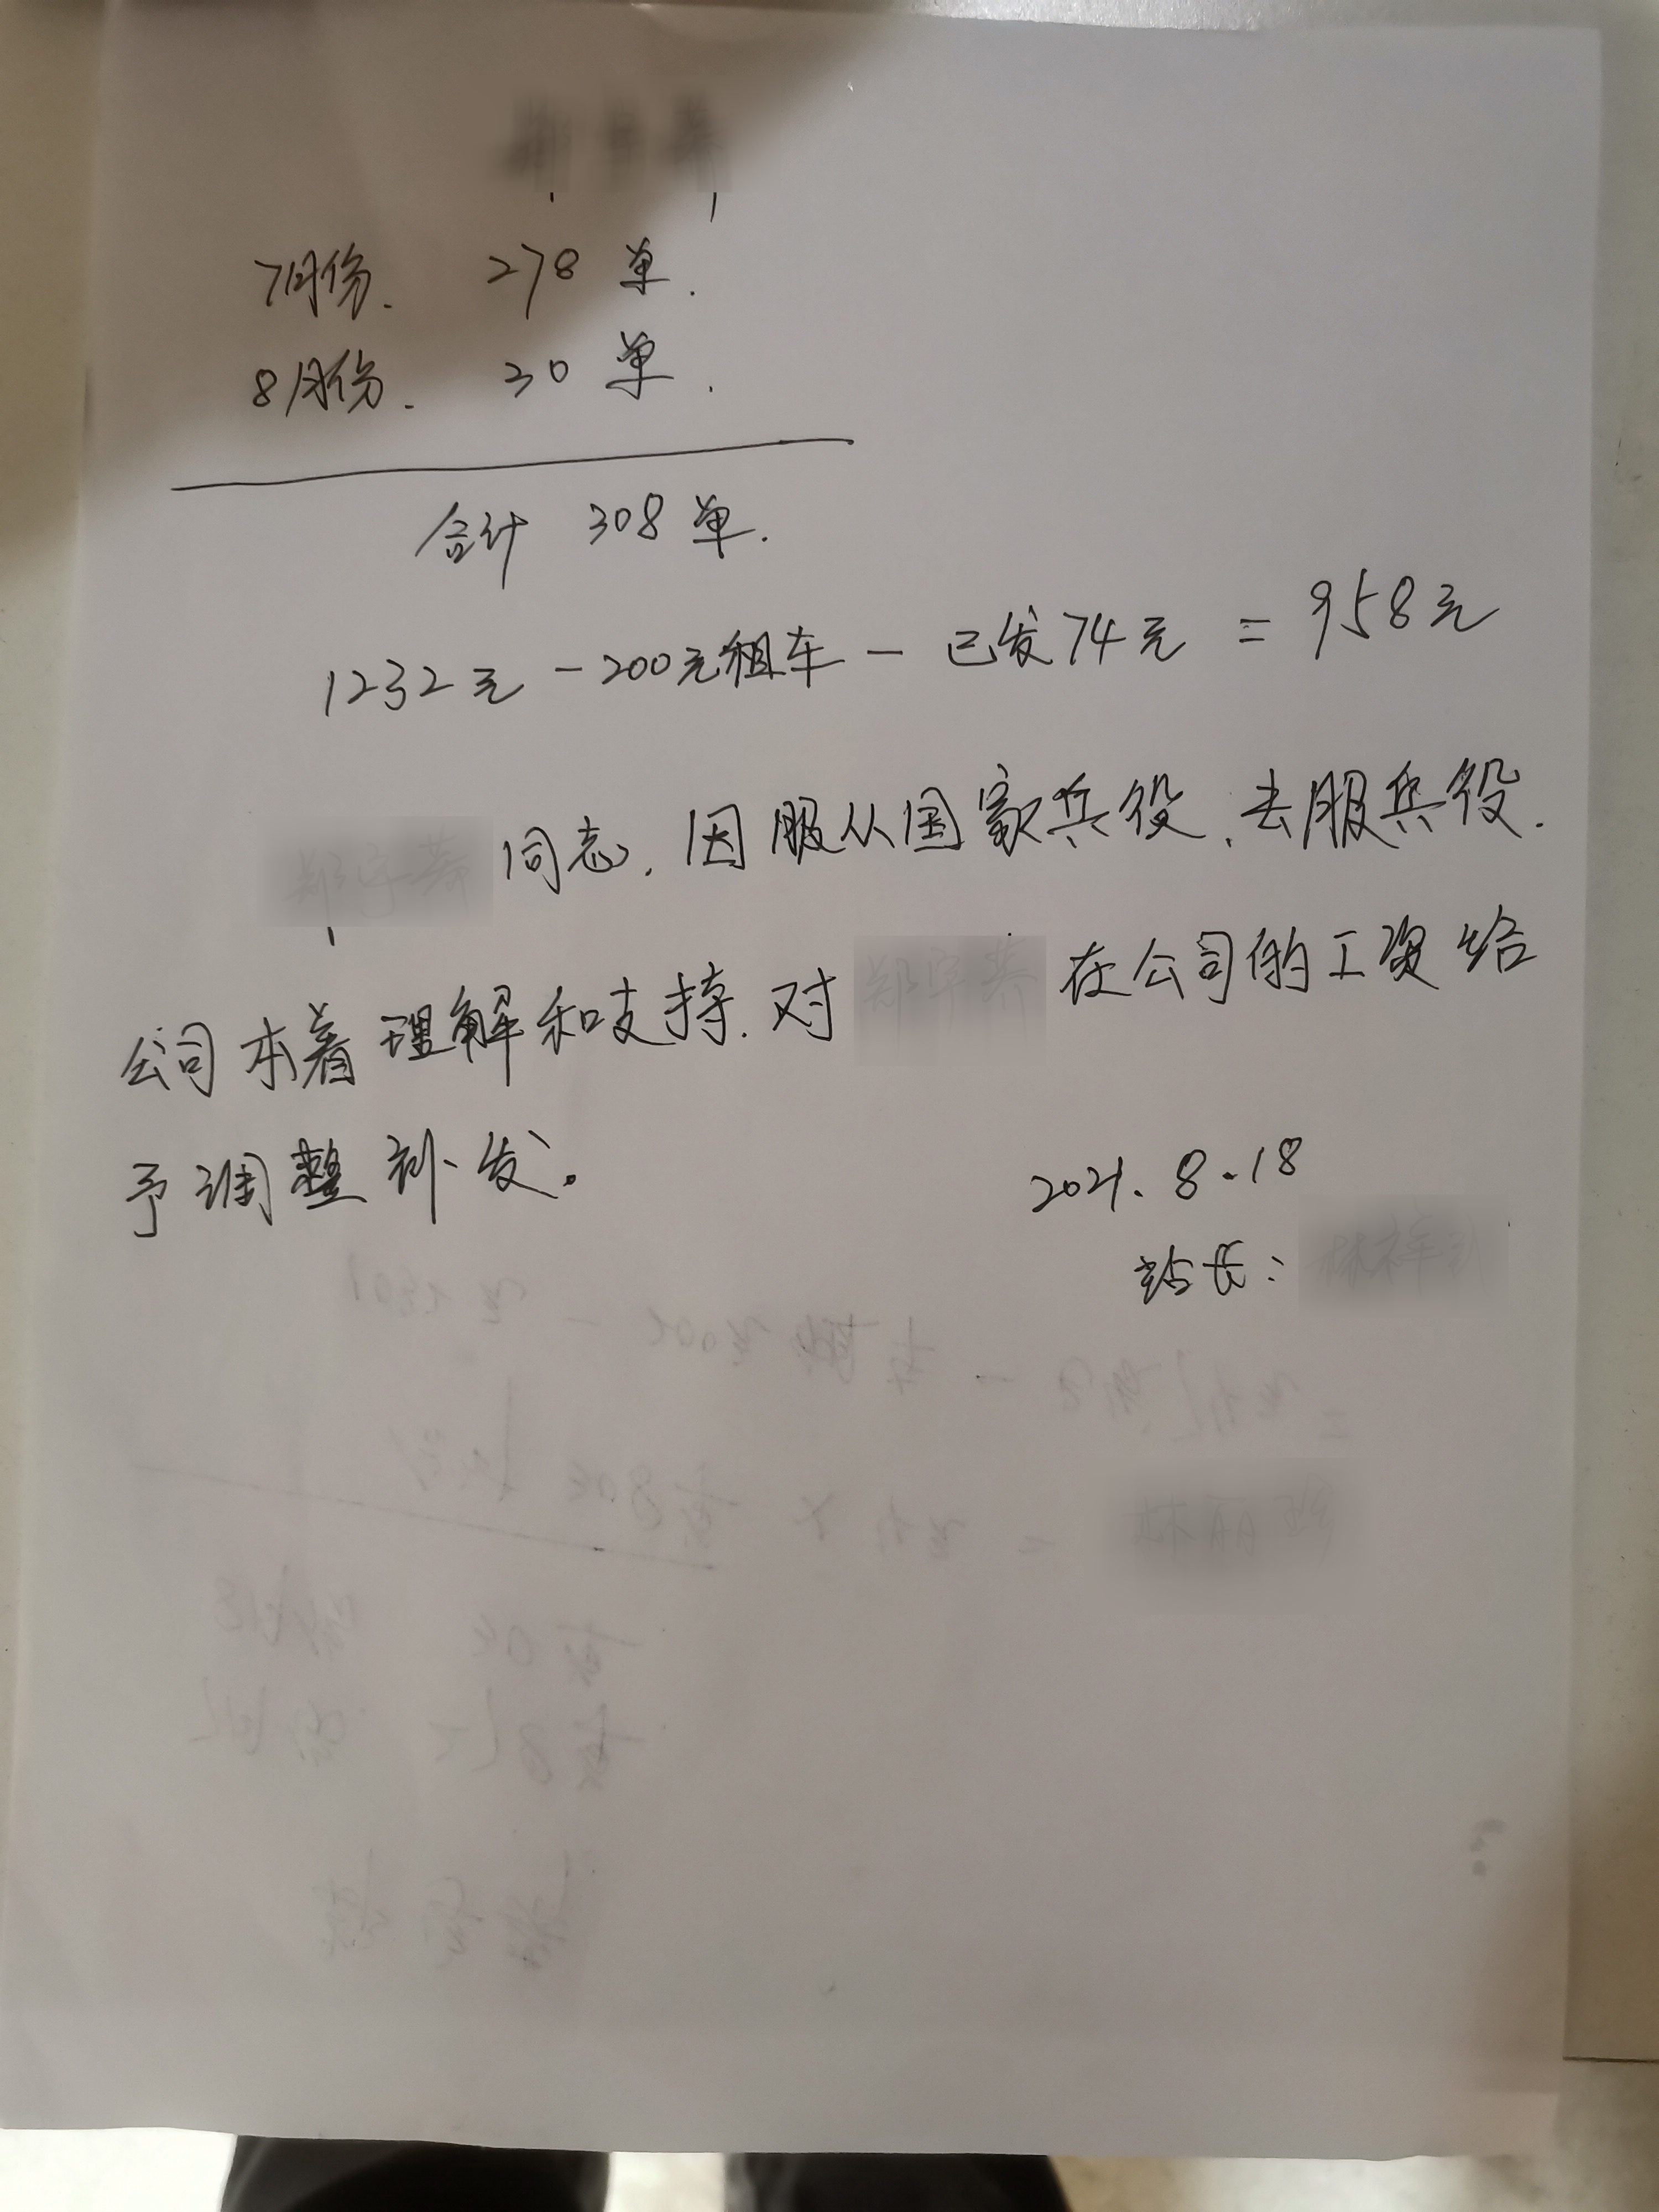 7月份. 278 单.
8月份. 30 单.
合计 308 单.
1232元 - 200元租车 - 已发74元 = 958元
同志. 因服从国家兵役, 去服兵役.
公司本着理解和支持. 对 在公司的工资给
予调整补发。
2021. 8. 18
站长: